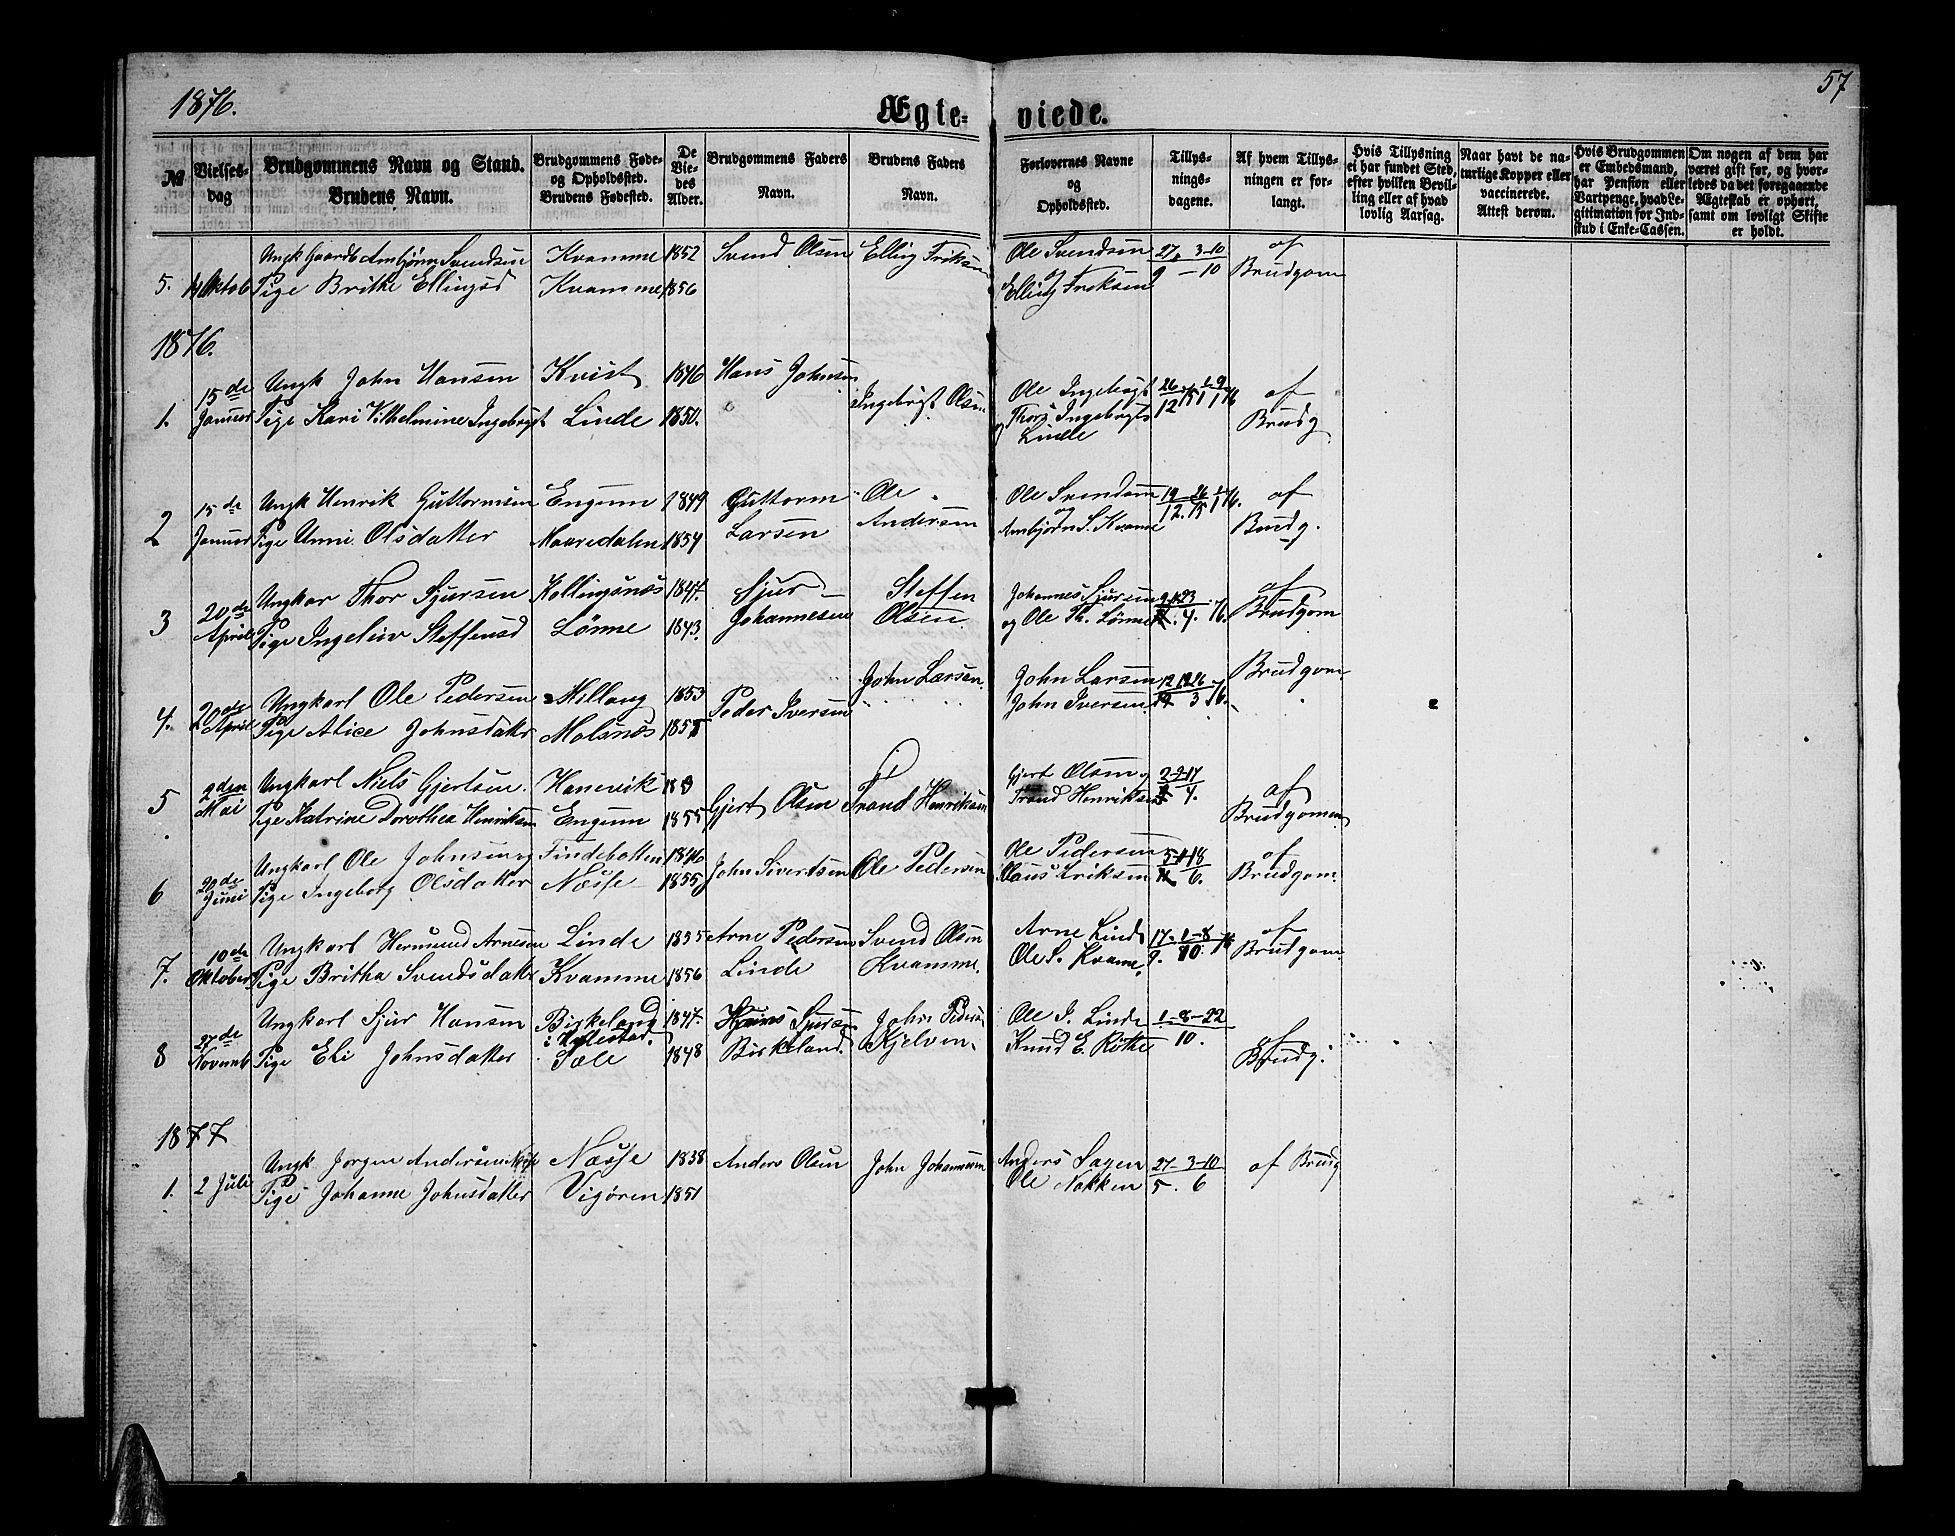 1876.
Ægte-viede.
57
№
Vielses-
dag
Brudgommens Navn og Stand.
Brudens Navn.
Brudgommens Føde-
og Opholdssted.
Brudens Fødested.
De
Vie-
des
Alder.
Brudgommens Faders
Navn.
Brudens Faders
Navn.
Forlovernes Navne
og
Opholdssted.
Tillys-
nings-
dagene.
Af hvem Tillys-
ningen er for-
langt.
Hvis Tillysning
ei har fundet Sted,
efter hvilken Bevil-
ling eller af hvad
lovlig Aarsag.
Naar havt de na-
turlige Kopper eller
vaccinerede.
Attest derom.
Hvis Brudgommen
er Embedsmand,
har Pension eller
Vartpenge, hvad Le-
gitimation for Ind-
skud i Enke-Cassen.
Om nogen af dem har
været gift før, og hvor-
ledes da det foregaaende
Ægteskab er ophørt,
samt om lovligt Skifte
er holdt.
Ungk Gaardb Ambjørn Svendsen Kvamme 1852 Svend Olsen Elling Eriksen Ole Svendsen 27. 3-10 af
5. Oktob Pige Brithe Ellingsd Kvamme 1856 og Elling Eriksen 9 - 10 Brudgom
1876.
15de Ungk John Hansen Kvist 1846 Hans Johnsen Ole Ingebrigt af
1. Januar Pige Kari Vilhelmine Ingebrigt Linde 1850. Ingebrigt Olsen og Thors Ingebrigts Brudg
Linde
15de Ungk Henrik Guttormsen Engum 1849 Guttorm Ole Ole Svendsen af
2 Januar Pige Unni Olsdatter Maaredalen 1854 Larsen Andersen og Ambjørn S. Kvamme Brudg.
20de Ungkar Thor Sjursen Kollingsnæs 1847. Sjur Steffen Johannes Sjursen af
3 April Pige Ingeliv Steffensd Lønne 1843. Johannesen Olsen og Ole Th. Lønne 4. 76. Brudgom
20de Ungkarl Ole Pedersen Millang 1853 Peder Iversen John Larsen. John Larsen Brudgom
4. April Pige Alice Johnsdatter Molsnæs 1857 John Iversen 3 76.
2den Ungkarl Niels Gjertsen. Hanevik Gjert Olsen Trond Henriksen Gjert Olsen og af
5 Mai Pige Katrine Dorothea Henriksen Engum 1855 Trond Henriksen 4. Brudgommen
20de Ungkarl Ole Johnsen og Tindebotten 1846 John Sivertsen Ole Pedersen Ole Pedersen af
6 Juni Pige Ingeborg Olsdatter Næsse 1855 Claus Eriksen 6. Brudgom.
10de Ungkarl Hermund Arnesen Linde 1835 Arne Pedersen Svend Olsen Arne Linde 17. 1-8 af
7. Oktober Pige Britha Svendsdatter Kvamme 1856 Linde Kvamme. Ole S. Kvame. 9. 10. Brudgom
27de Ungkarl Sjur Hansen Birkeland 1847. Hans Sjursen John Pedersen Ole J. Linde 1-8-22 af
8 Novemb Pige Eli Johnsdatter Sæle 1848 Birkeland. Kjelven. Knud E. Røthe 10. Brudg.
1877
Ungk Jørgen Andersen Næsse 1838 Anders Olsen John Johannesen Anders Lagen 27-3-10 af Brudg
1. 2 Juli Pige Johanne Johnsdatter Vigøren 1851 Ole Nakken 5. 6